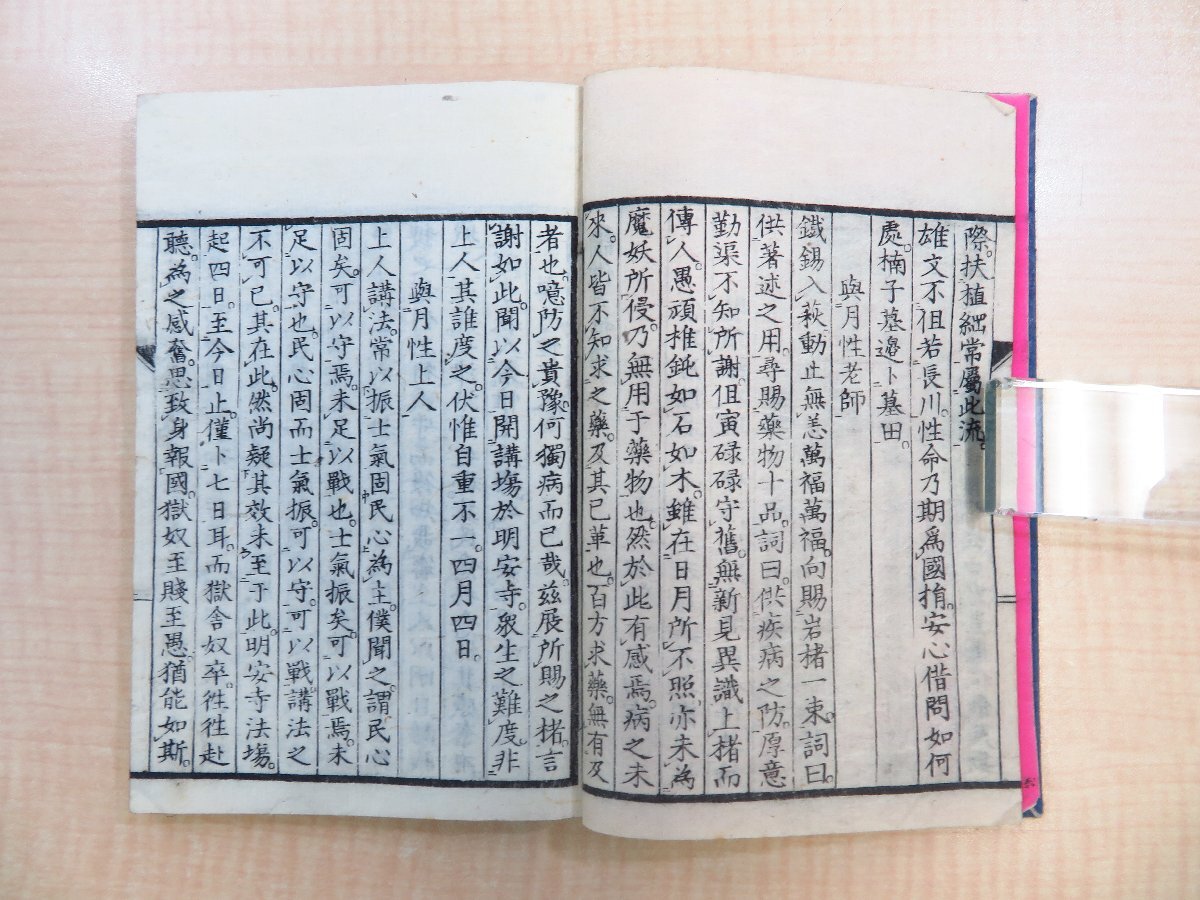 際。扶植綱常屬此流。
雄文不徂若長川。性命乃期為國捐。安心借問如何
處。楠子墓邊卜墓田。
與月性老師
鐵錫入萩動止無恙萬福萬福。向賜岩楮一束。詞曰。
供著述之用。尋賜藥物十品。詞曰。供疾病之防。厚意
勤渠不知所謝。但寅碌碌守舊。無新見異識上楮而
傳人。愚頑椎鈍如石如木。雖在日月所不照。亦未為
魔妖所侵。乃無用于藥物也。然於此有感焉。病之未
來。人皆不知求之藥。及其已革也。百方求藥。無有及
者也。噫防之貴豫。何獨病而已哉。茲展所賜之楮。言
謝如此。聞以今日開講塲於明安寺。衆生之難度。非
上人其誰度之。伏惟自重不一。四月四日。
與月性上人
上人講法。常以振士氣固民心為主。僕聞之。謂民心
固矣。可以守焉。未足以戰也。士氣振矣。可以戰焉。未
足以守也。民心固而士氣振。可以守。可以戰。講法之
不可已。其在此。然尚疑其效未至于此。明安寺法塲。
起四日。至今日止。僅卜七日耳。而獄舍奴卒。徃徃赴
聽。為之感奮。思致身報國。獄奴至賤至愚。猶能如斯。